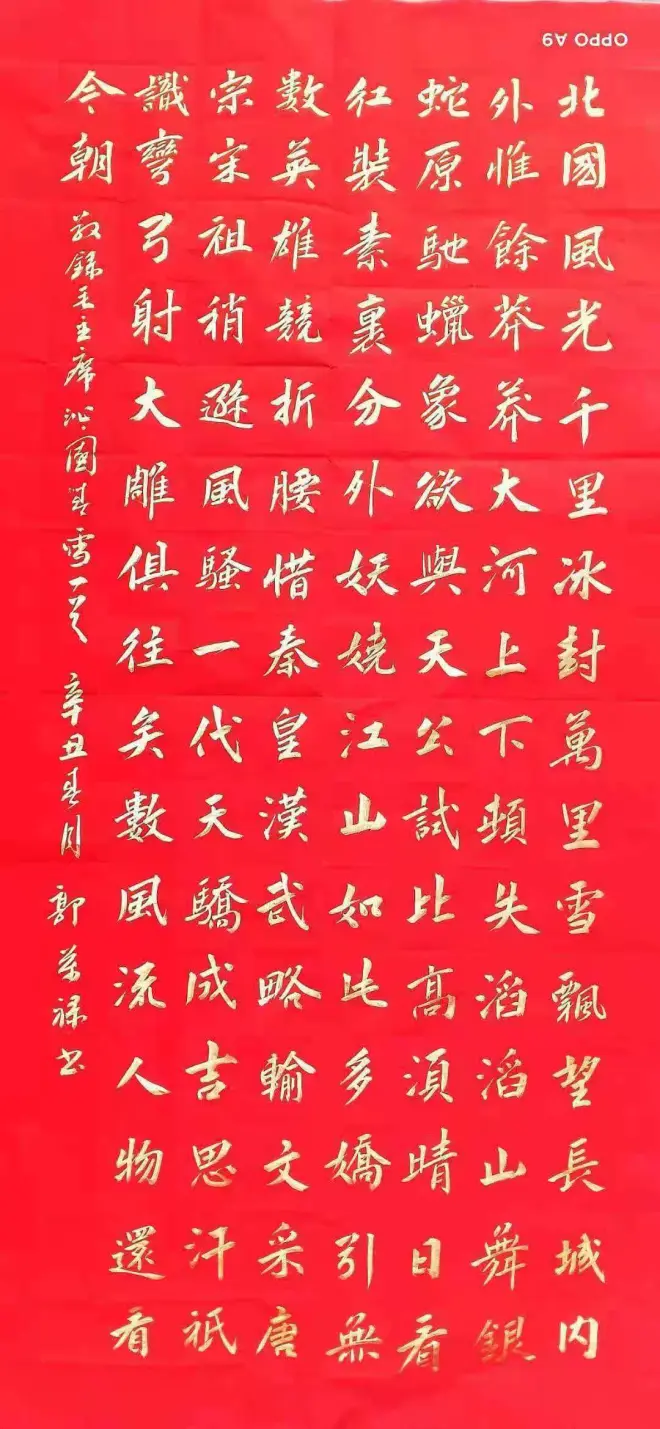 北國風光千里冰封萬里雪飄望長城内
外惟餘莽莽大河上下頓失滔滔山舞銀
蛇原馳蠟象欲與天公試比高須晴日看
红裝素裹分外妖嬈江山如此多嬌引無
數英雄競折腰惜秦皇漢武略輸文采唐
宗宋祖稍遜風騷一代天驕成吉思汗祇
識彎弓射大雕俱往矣數風流人物還看
今朝 敬錄毛主席沁園春雪一首 辛丑春月 郭萬禄书
OPPO A9